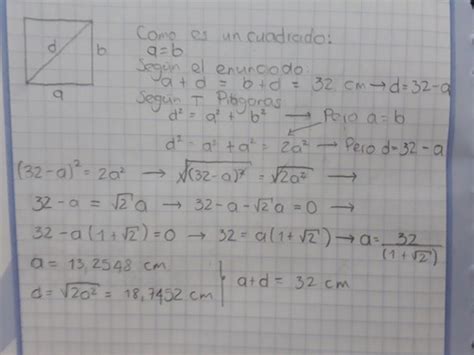 d
b
a
Como es un cuadrado:
a=b
Según el enunciado
a + d = b + d = 32 cm → d = 32 - a
Según T Pitágoras
d² = a² + b² → Pero a = b
d² = a² + a² = 2a² → Pero d = 32 - a
(32-a)² = 2a² → √(32-a)² = √2a² →
32 - a = √2 a → 32 - a - √2 a = 0 →
32 - a (1 + √2) = 0 → 32 = a (1 + √2) → a = 32/(1 + √2)
a = 13,2548 cm
d = √2a² = 18,7452 cm
a + d = 32 cm